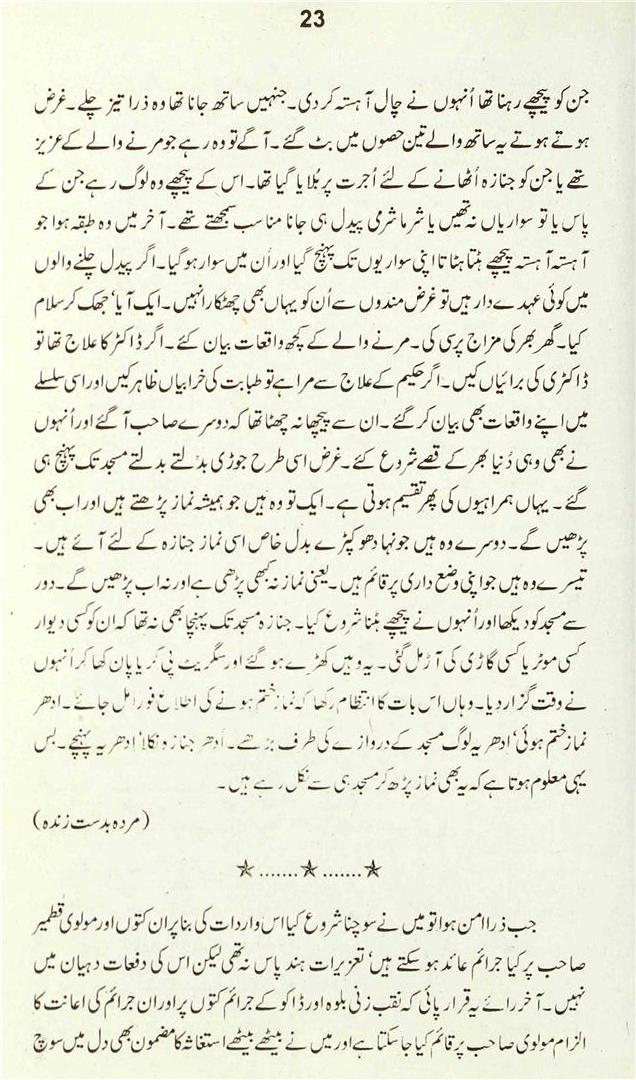 23
جن کو پیچھے رہنا تھا اُنہوں نے چال آہستہ کر دی۔ جنہیں ساتھ جانا تھا وہ ذرا تیز چلے۔ غرض
ہوتے ہوتے یہ ساتھ والے تین حصوں میں بٹ گئے۔ آگے تو وہ رہے جو مرنے والے کے عزیز
تھے یا جن کو جنازہ اُٹھانے کے لئے اُجرت پر بُلایا گیا تھا۔ اس کے پیچھے وہ لوگ رہے جن کے
پاس یا تو سواریاں نہ تھیں یا شرما شرمی پیدل ہی جانا مناسب سمجھتے تھے۔ آخر میں وہ طبقہ ہوا جو
آہستہ آہستہ پیچھے ہٹتا ہٹاتا اپنی سواریوں تک پہنچ گیا اور اُن میں سوار ہو گیا۔ اگر پیدل چلنے والوں
میں کوئی عہدے دار ہیں تو غرض مندوں سے اُن کو یہاں بھی چھٹکارا نہیں۔ ایک آیا‘ جھک کر سلام
کیا۔ گھر بھر کی مزاج پرسی کی۔ مرنے والے کے کچھ واقعات بیان کئے۔ اگر ڈاکٹر کا علاج تھا تو
ڈاکٹری کی برائیاں کیں۔ اگر حکیم کے علاج سے مرا ہے تو طبابت کی خرابیاں ظاہر کیں اور اسی سلسلے
میں اپنے واقعات بھی بیان کر گئے۔ ان سے پیچھا نہ چھٹا تھا کہ دوسرے صاحب آ گئے اور اُنہوں
نے بھی وہی دُنیا بھر کے قصے شروع کئے۔ غرض اسی طرح جوڑی بدلتے بدلتے مسجد تک پہنچ ہی
گئے۔ یہاں ہمراہیوں کی پھر تقسیم ہوتی ہے۔ ایک تو وہ ہیں جو ہمیشہ نماز پڑھتے ہیں اور اب بھی
پڑھیں گے۔ دوسرے وہ ہیں جو نہا دھو کپڑے بدل خاص اسی نماز جنازہ کے لئے آئے ہیں۔
تیسرے وہ ہیں جو اپنی وضع داری پر قائم ہیں۔ یعنی نماز نہ کبھی پڑھی ہے اور نہ اب پڑھیں گے۔ دور
سے مسجد کو دیکھا اور اُنہوں نے پیچھے ہٹنا شروع کیا۔ جنازہ مسجد تک پہنچا بھی نہ تھا کہ ان کو کسی دیوار
کسی موٹر یا کسی گاڑی کی آڑ مل گئی۔ یہ وہیں کھڑے ہو گئے اور سگریٹ پی کر یا پان کھا کر اُنہوں
نے وقت گزار دیا۔ وہاں اس بات کا انتظام رکھا کہ نماز ختم ہونے کی اطلاع فوراً مل جائے۔ ادھر
نماز ختم ہوئی‘ ادھر یہ لوگ مسجد کے دروازے کی طرف بڑھے۔ اُدھر جنازہ نکلا‘ ادھر یہ پہنچے۔ بس
یہی معلوم ہوتا ہے کہ یہ بھی نماز پڑھ کر مسجد ہی سے نکل رہے ہیں۔
(مردہ بدست زندہ)
جب ذرا امن ہوا تو میں نے سوچنا شروع کیا اس واردات کی بنا پر ان کتوں اور مولوی قطمیر
صاحب پر کیا جرائم عائد ہو سکتے ہیں‘ تعزیرات ہند پاس نہ تھی لیکن اس کی دفعات دہیان میں
نہیں۔ آخر رائے یہ قرار پائی کہ نقب زنی بلوہ اور ڈاکو کے جرائم کتوں پر اور ان جرائم کی اعانت کا
الزام مولوی صاحب پر قائم کیا جا سکتا ہے اور میں نے بیٹھے بیٹھے استغاثہ کا مضمون بھی دل میں سوچ